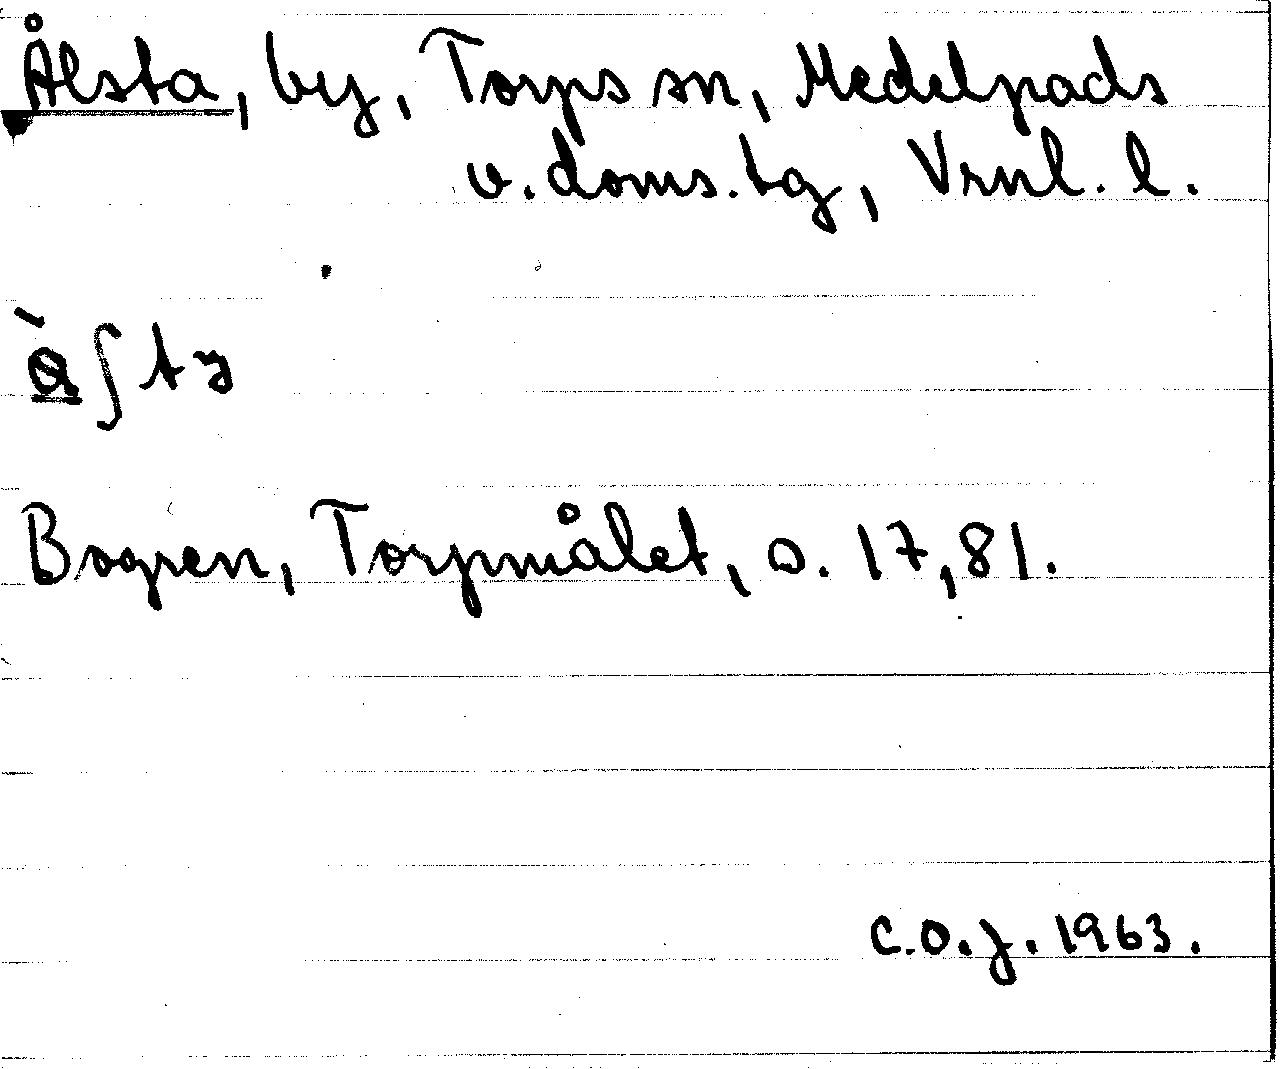 Ålsta, by, Torps sn, Medelpads
v. doms. tg, Vrnl. l.
Bogren, Torpmålet, s. 17, 81.
C.O.J. 1963.